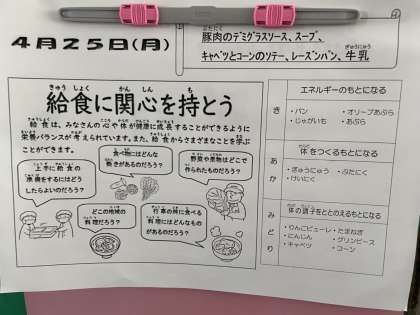 4月25日(月)
豚肉のデミグラスソース、スープ、
キャベツとコーンのソテー、レーズンパン、牛乳
給食に関心を持とう
給食は、みなさんの心や体が健康に成長することができるように
栄養バランスが考えられています。また、給食からさまざまなことを学ぶ
ことができます。
上手に給食の
準備をするにはどう
したらよいのだろう?
食べ物にはどんな
働きがあるのだろう?
野菜や果物はどこで
作られたものだろう?
どこの地域の
料理だろう?
行事の時に食べる
料理にはどんなもの
があるのだろう?
エネルギーのもとになる
き
・パン ・オリーブあぶら
・じゃがいも ・あぶら
体をつくるもとになる
あか
・ぎゅうにゅう ・ぶたにく
・けいにく
体の調子をととのえるもとになる
みどり
・りんごピューレ ・たまねぎ
・にんじん ・グリンピース
・キャベツ ・コーン